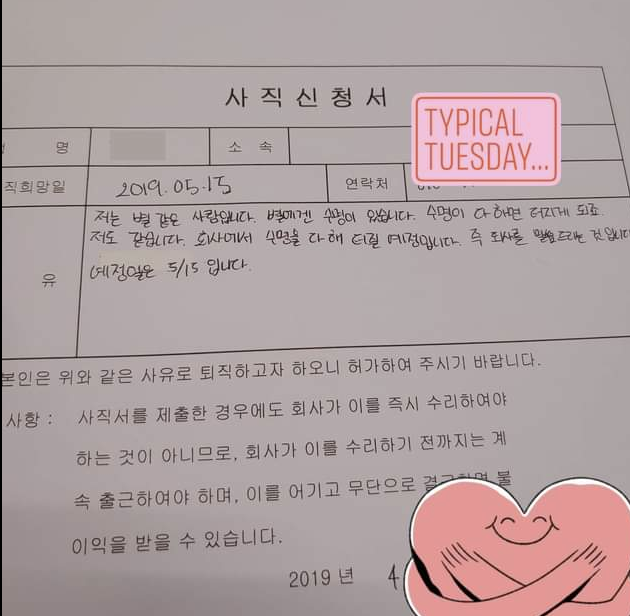 사직신청서
TYPICAL
TUESDAY...
명
소 속
직희망일
2019.05.15
연락처
저는 별 같은 사람입니다. 별에겐 수명이 있습니다. 수명이 다 하면 터지게 되죠.
저도 같습니다. 회사에서 수명을 다 해 터질 예정입니다. 즉 퇴사를 말씀드리는 것입니다
유
예정일은 5/15 입니다.
본인은 위와 같은 사유로 퇴직하고자 하오니 허가하여 주시기 바랍니다.
사항 : 사직서를 제출한 경우에도 회사가 이를 즉시 수리하여야
하는 것이 아니므로, 회사가 이를 수리하기 전까지는 계
속 출근하여야 하며, 이를 어기고 무단으로 결근하면 불
이익을 받을 수 있습니다.
2019 년 4